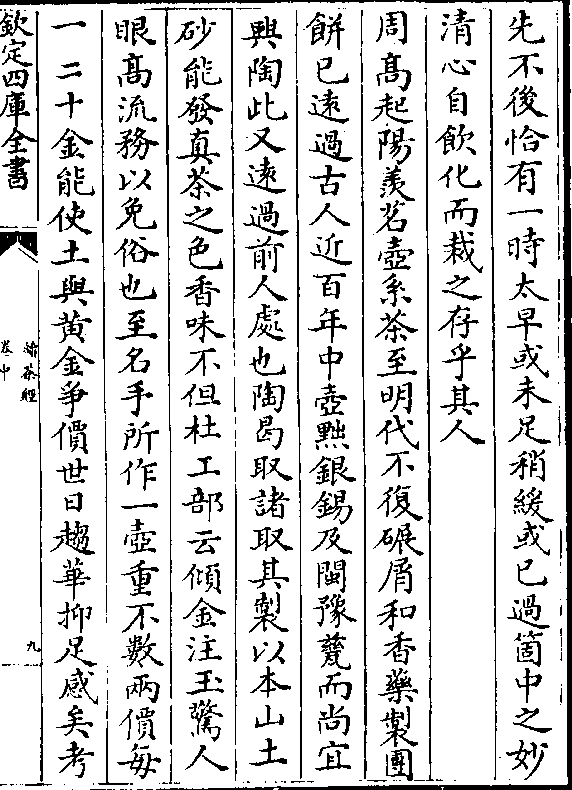 先不後恰有一時太早或未足稍緩或已過箇中之妙
清心自飲化而裁之存乎其人
周高起陽羨茗壺系茶至明代不復碾屑和香藥製團
餅已逺過古人近百年中壺黜銀錫及閩豫甆而尚宜
興陶此又逺過前人處也陶曷取諸取其製以本山土
砂能發真茶之色香味不但杜工部云傾金注玉驚人
眼高流務以免俗也至名手所作一壺重不數兩價每
一二十金能使土與黄金爭價世日趨華抑足感矣考
欽定四庫全書
續茶經
卷中
九